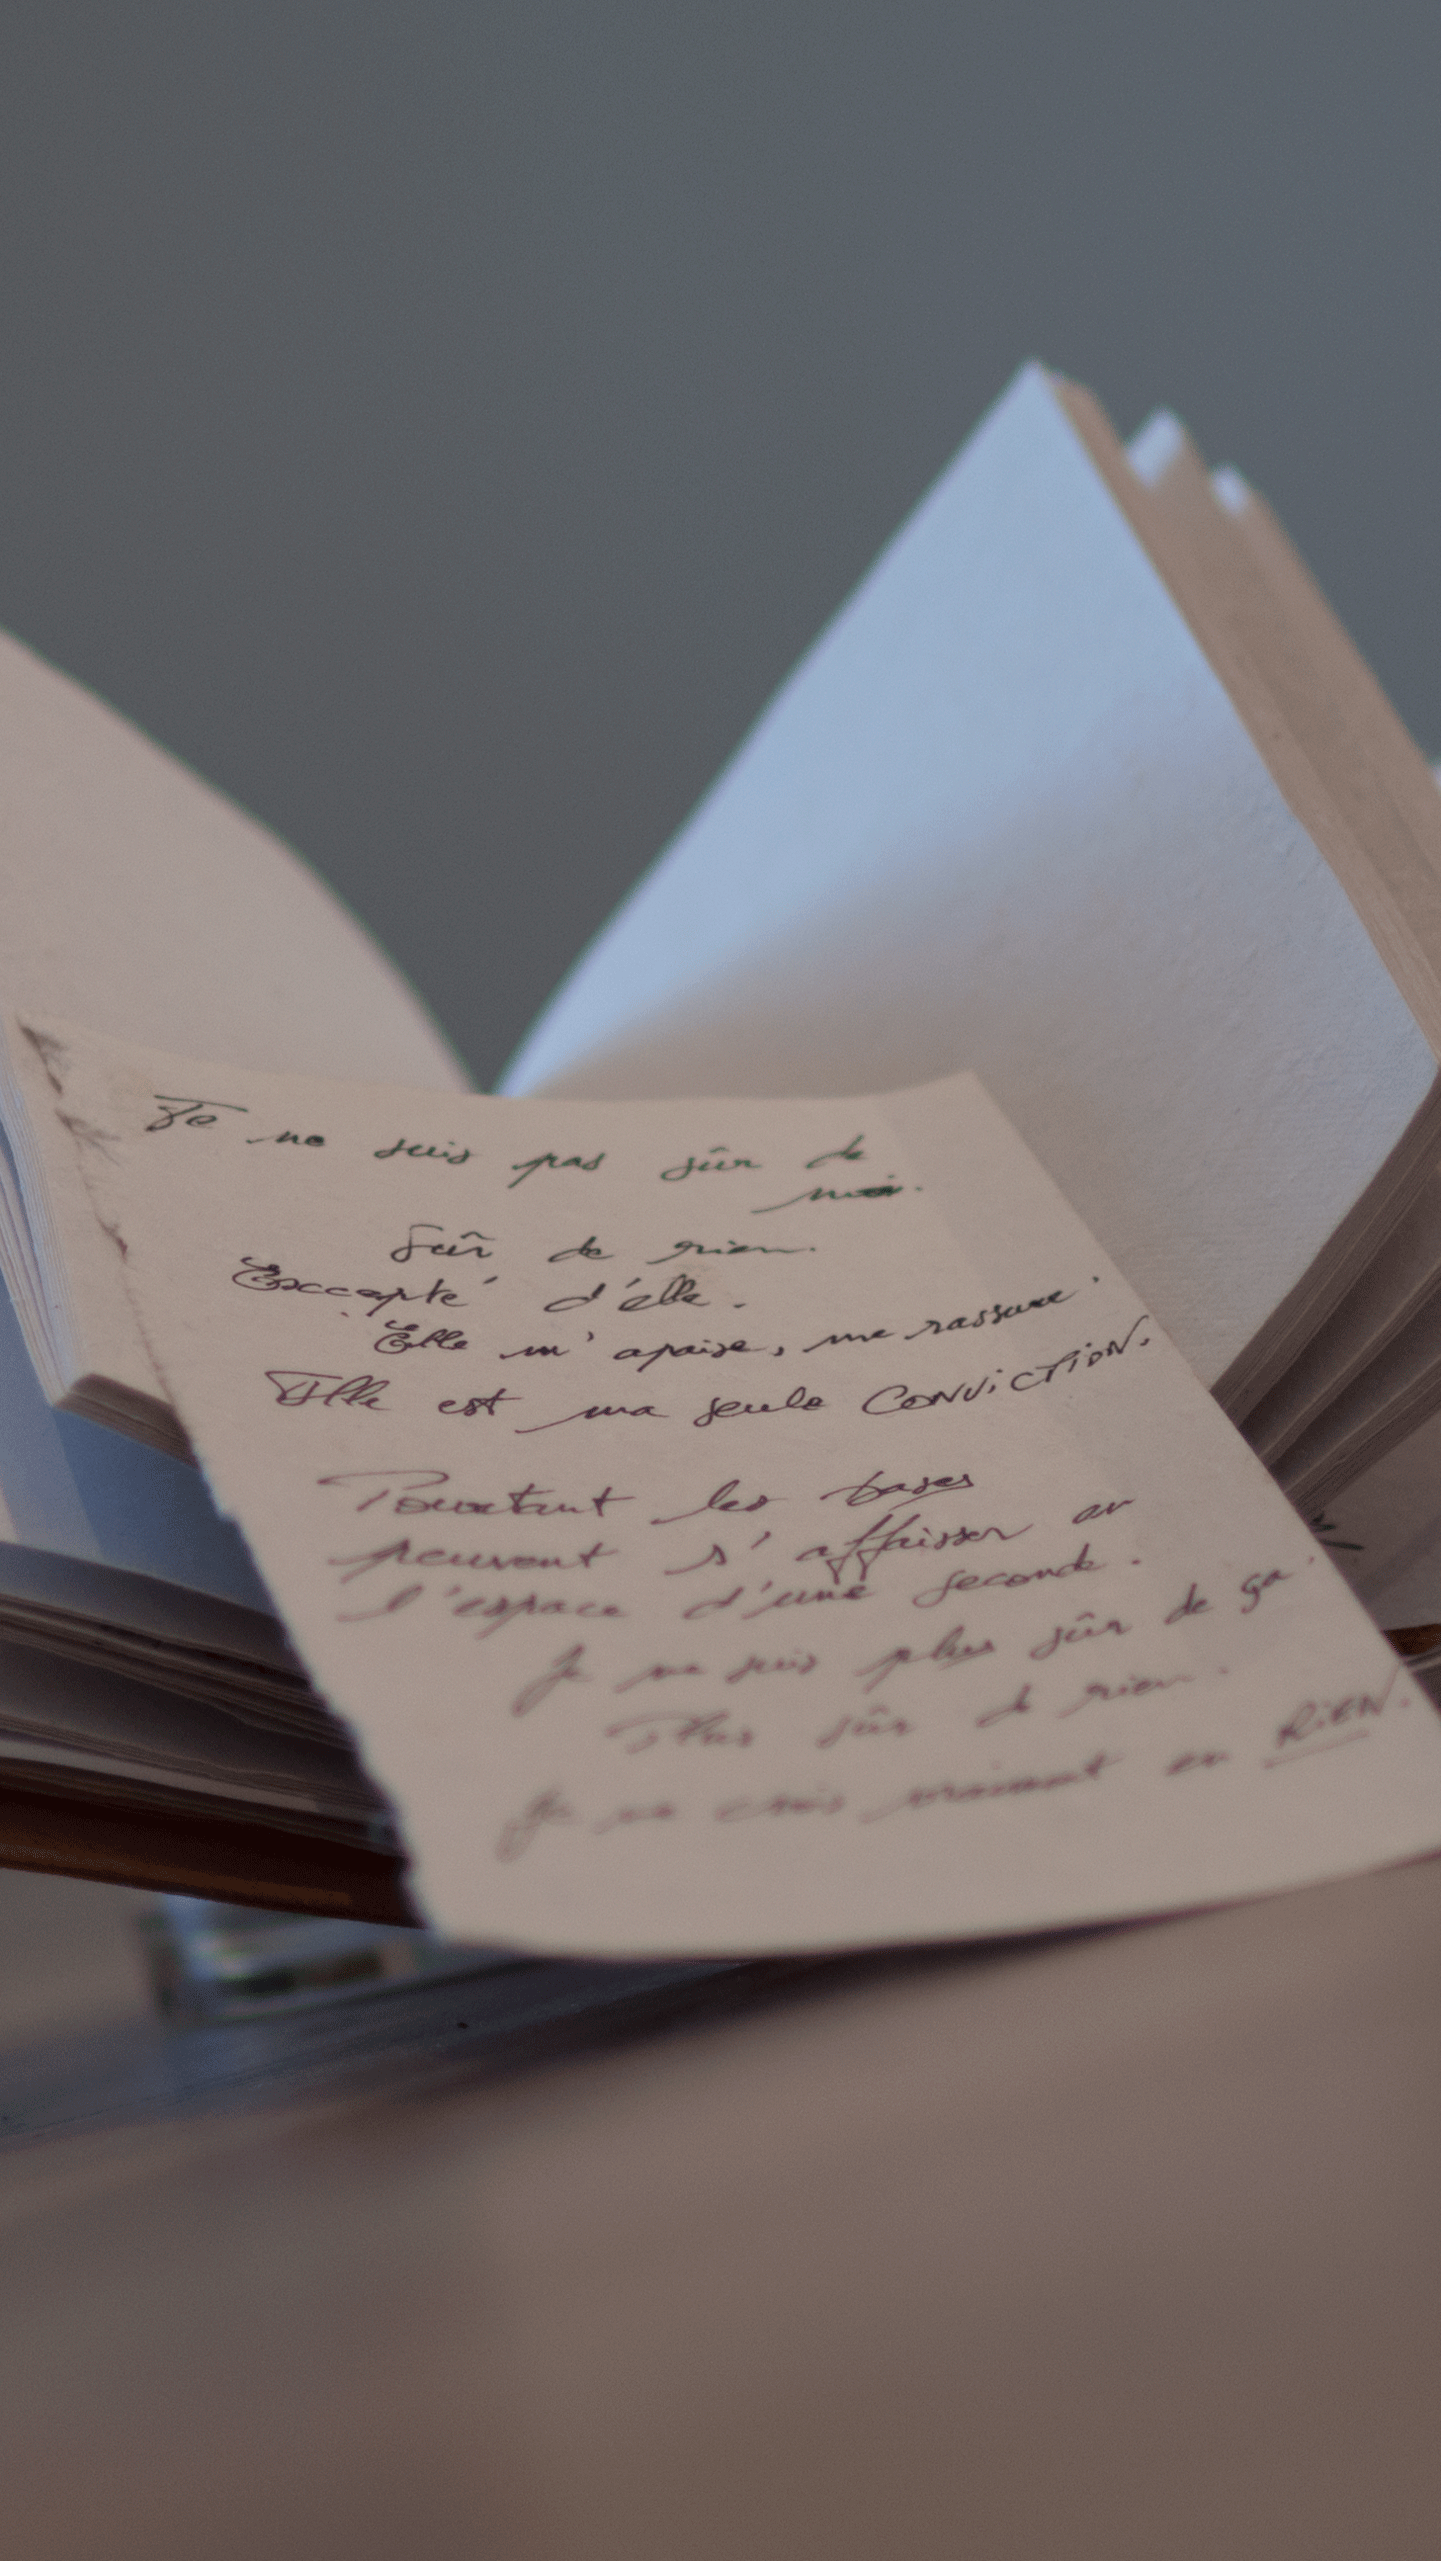 Je ne suis pas sûr de
moi.
Sûr de rien.
Exccepté d'élle.
Elle m'apaise, me rassure.
Elle est ma seule CONVICTION.
Pourtant les bases
peuvent s'affaisser en
l'espace d'une seconde.
Je ne suis plus sûr de ça.
Plus sûr de rien.
Je ne crois vraiment en RIEN.